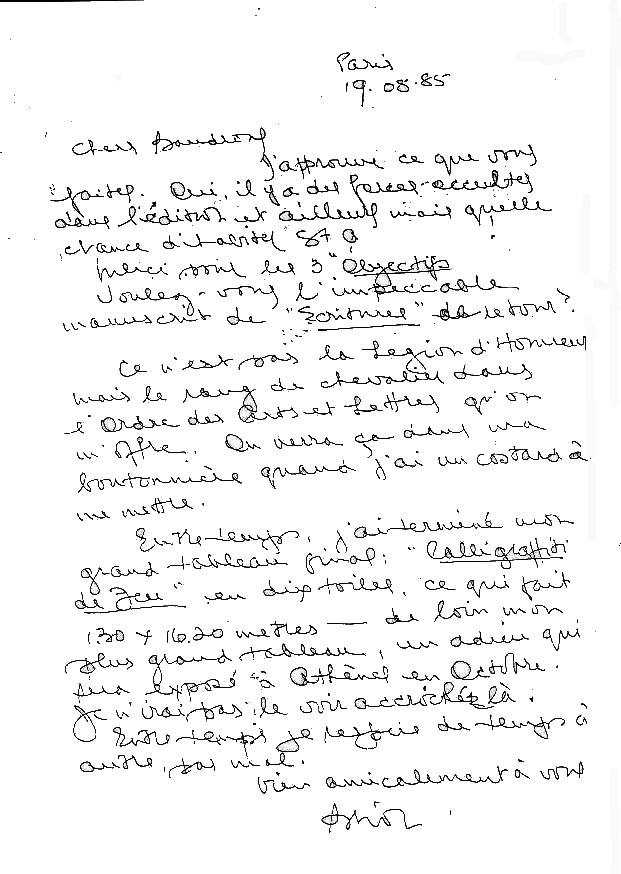 Paris
19.08.85
Chers Baudson
J'approuve ce que vous
faites. Oui, il y a des forces occultes
dans l'édition et ailleurs mais quelle
chance d'
ici sont les 3 "Objectifs
Voulez-vous l'impeccable
manuscrit de "Ecritures" de retour?
Ce n'est pas la Légion d'Honneur
mais le rang de chevalier dans
l'Ordre des Arts et Lettres qu'on
m'offre. On verra ça dans ma
boutonnière quand j'ai un costard à
me mettre.
Entre-temps, j'ai terminé mon
grand tableau final: "Calligraffiti
de Feu" en dix toiles, ce qui fait
130 x 16.20 metres — de loin mon
plus grand tableau, un adieu qui
sera exposé à Athènes en Octobre.
Je n'irai pas le voir accroché là.
Entre-temps je respire de temps à
autre, pas mal.
bien amicalement à vous